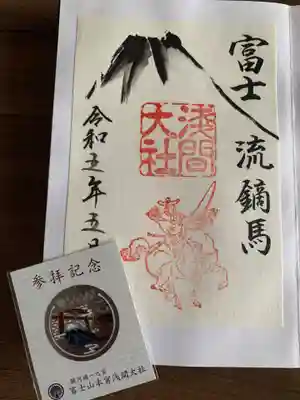 富士
流鏑馬
浅間
大社
令和五年五
参拝記念
駿河國一之宮
富士山本宮浅間大社